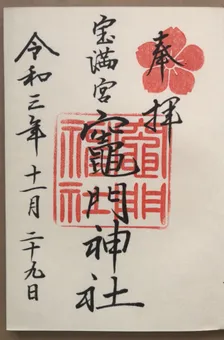 奉拝
宝満宮
竈門神社
令和三年十一月二十九日
竈門神社